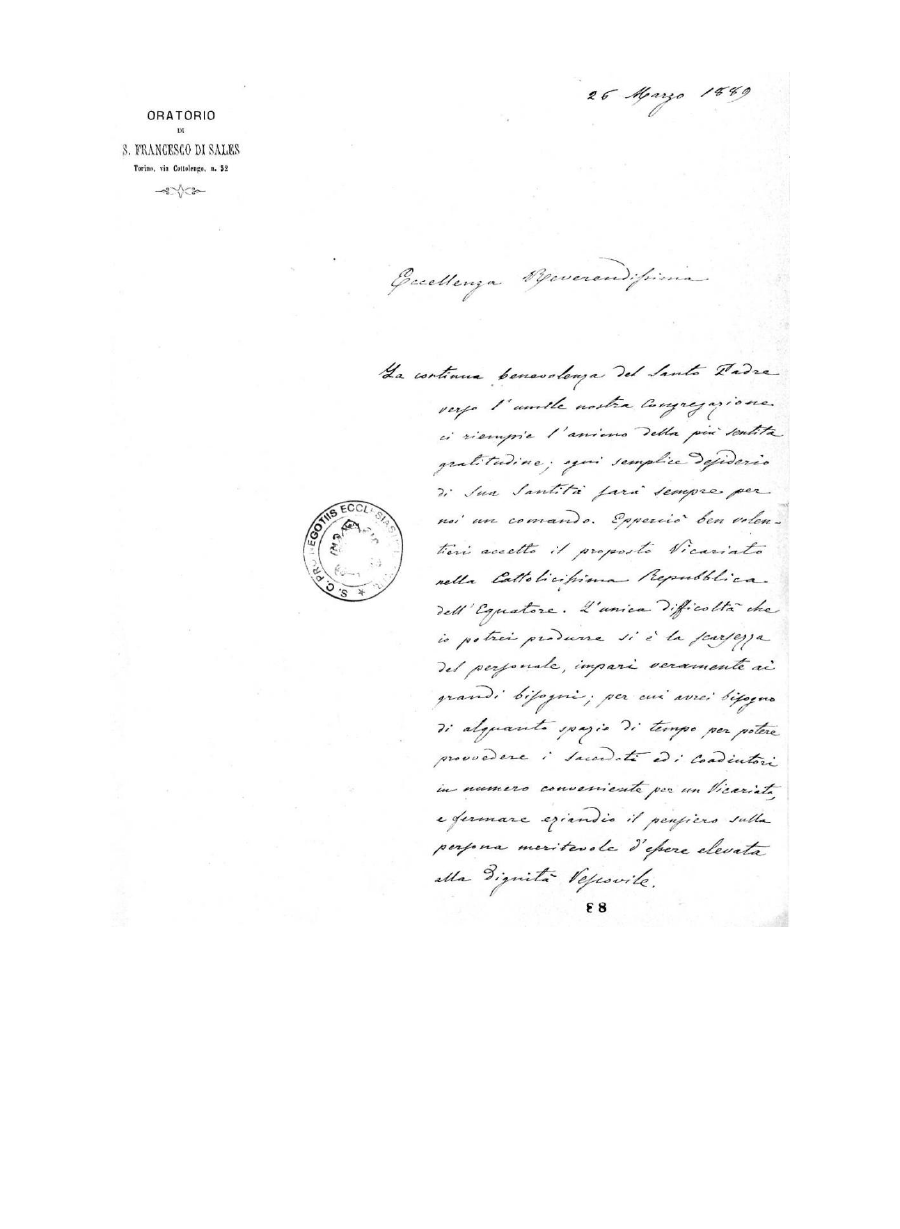 26 Marzo 1889
ORATORIO
DI
S. FRANCESCO DI SALES
Torino, via Cottolengo, n. 32
Eccellenza Reverendissima
La continua benevolenza del Santo Padre
verso l'umile nostra Congregazione
ci riempie l'animo della più sentita
gratitudine; ogni semplice desiderio
di Sua Santità sarà sempre per
noi un comando. Epperciò ben volen-
tieri accetto il proposto Vicariato
nella Cattolicissima Repubblica
dell'Equatore. L'unica difficoltà che
io potrei produrre si è la scarsezza
del personale, impari veramente ai
grandi bisogni; per cui avrei bisogno
di alquanto spazio di tempo per potere
provvedere i sacerdoti ed i Coadiutori
in numero conveniente per un Vicariato,
e fermare eziandio il pensiero sulla
persona meritevole d'essere elevata
alla Dignità Vescovile.
S. C. PRO NEGOTIIS ECCL
88